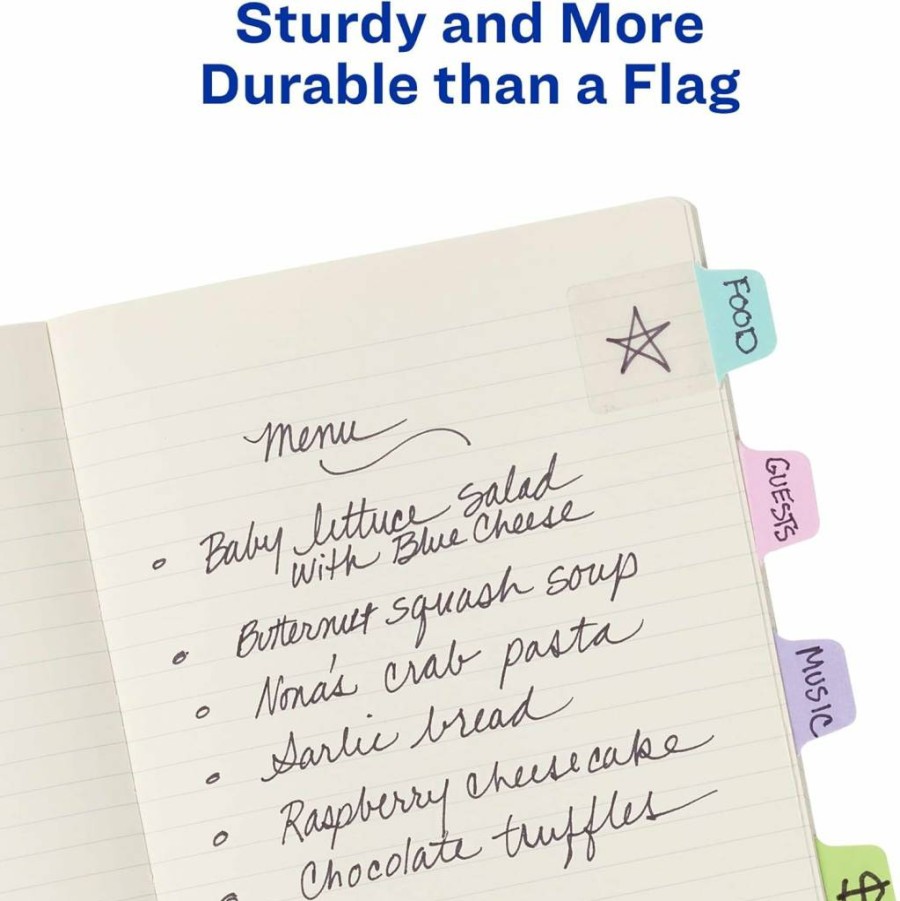 Sturdy and More
Durable than a Flag
FOOD
Menu
GUESTS
Baby lettuce salad
with Blue Cheese
Butternut squash soup
Nona's crab pasta
MUSIC
Garlic bread
Raspberry cheesecake
Chocolate truffles
$